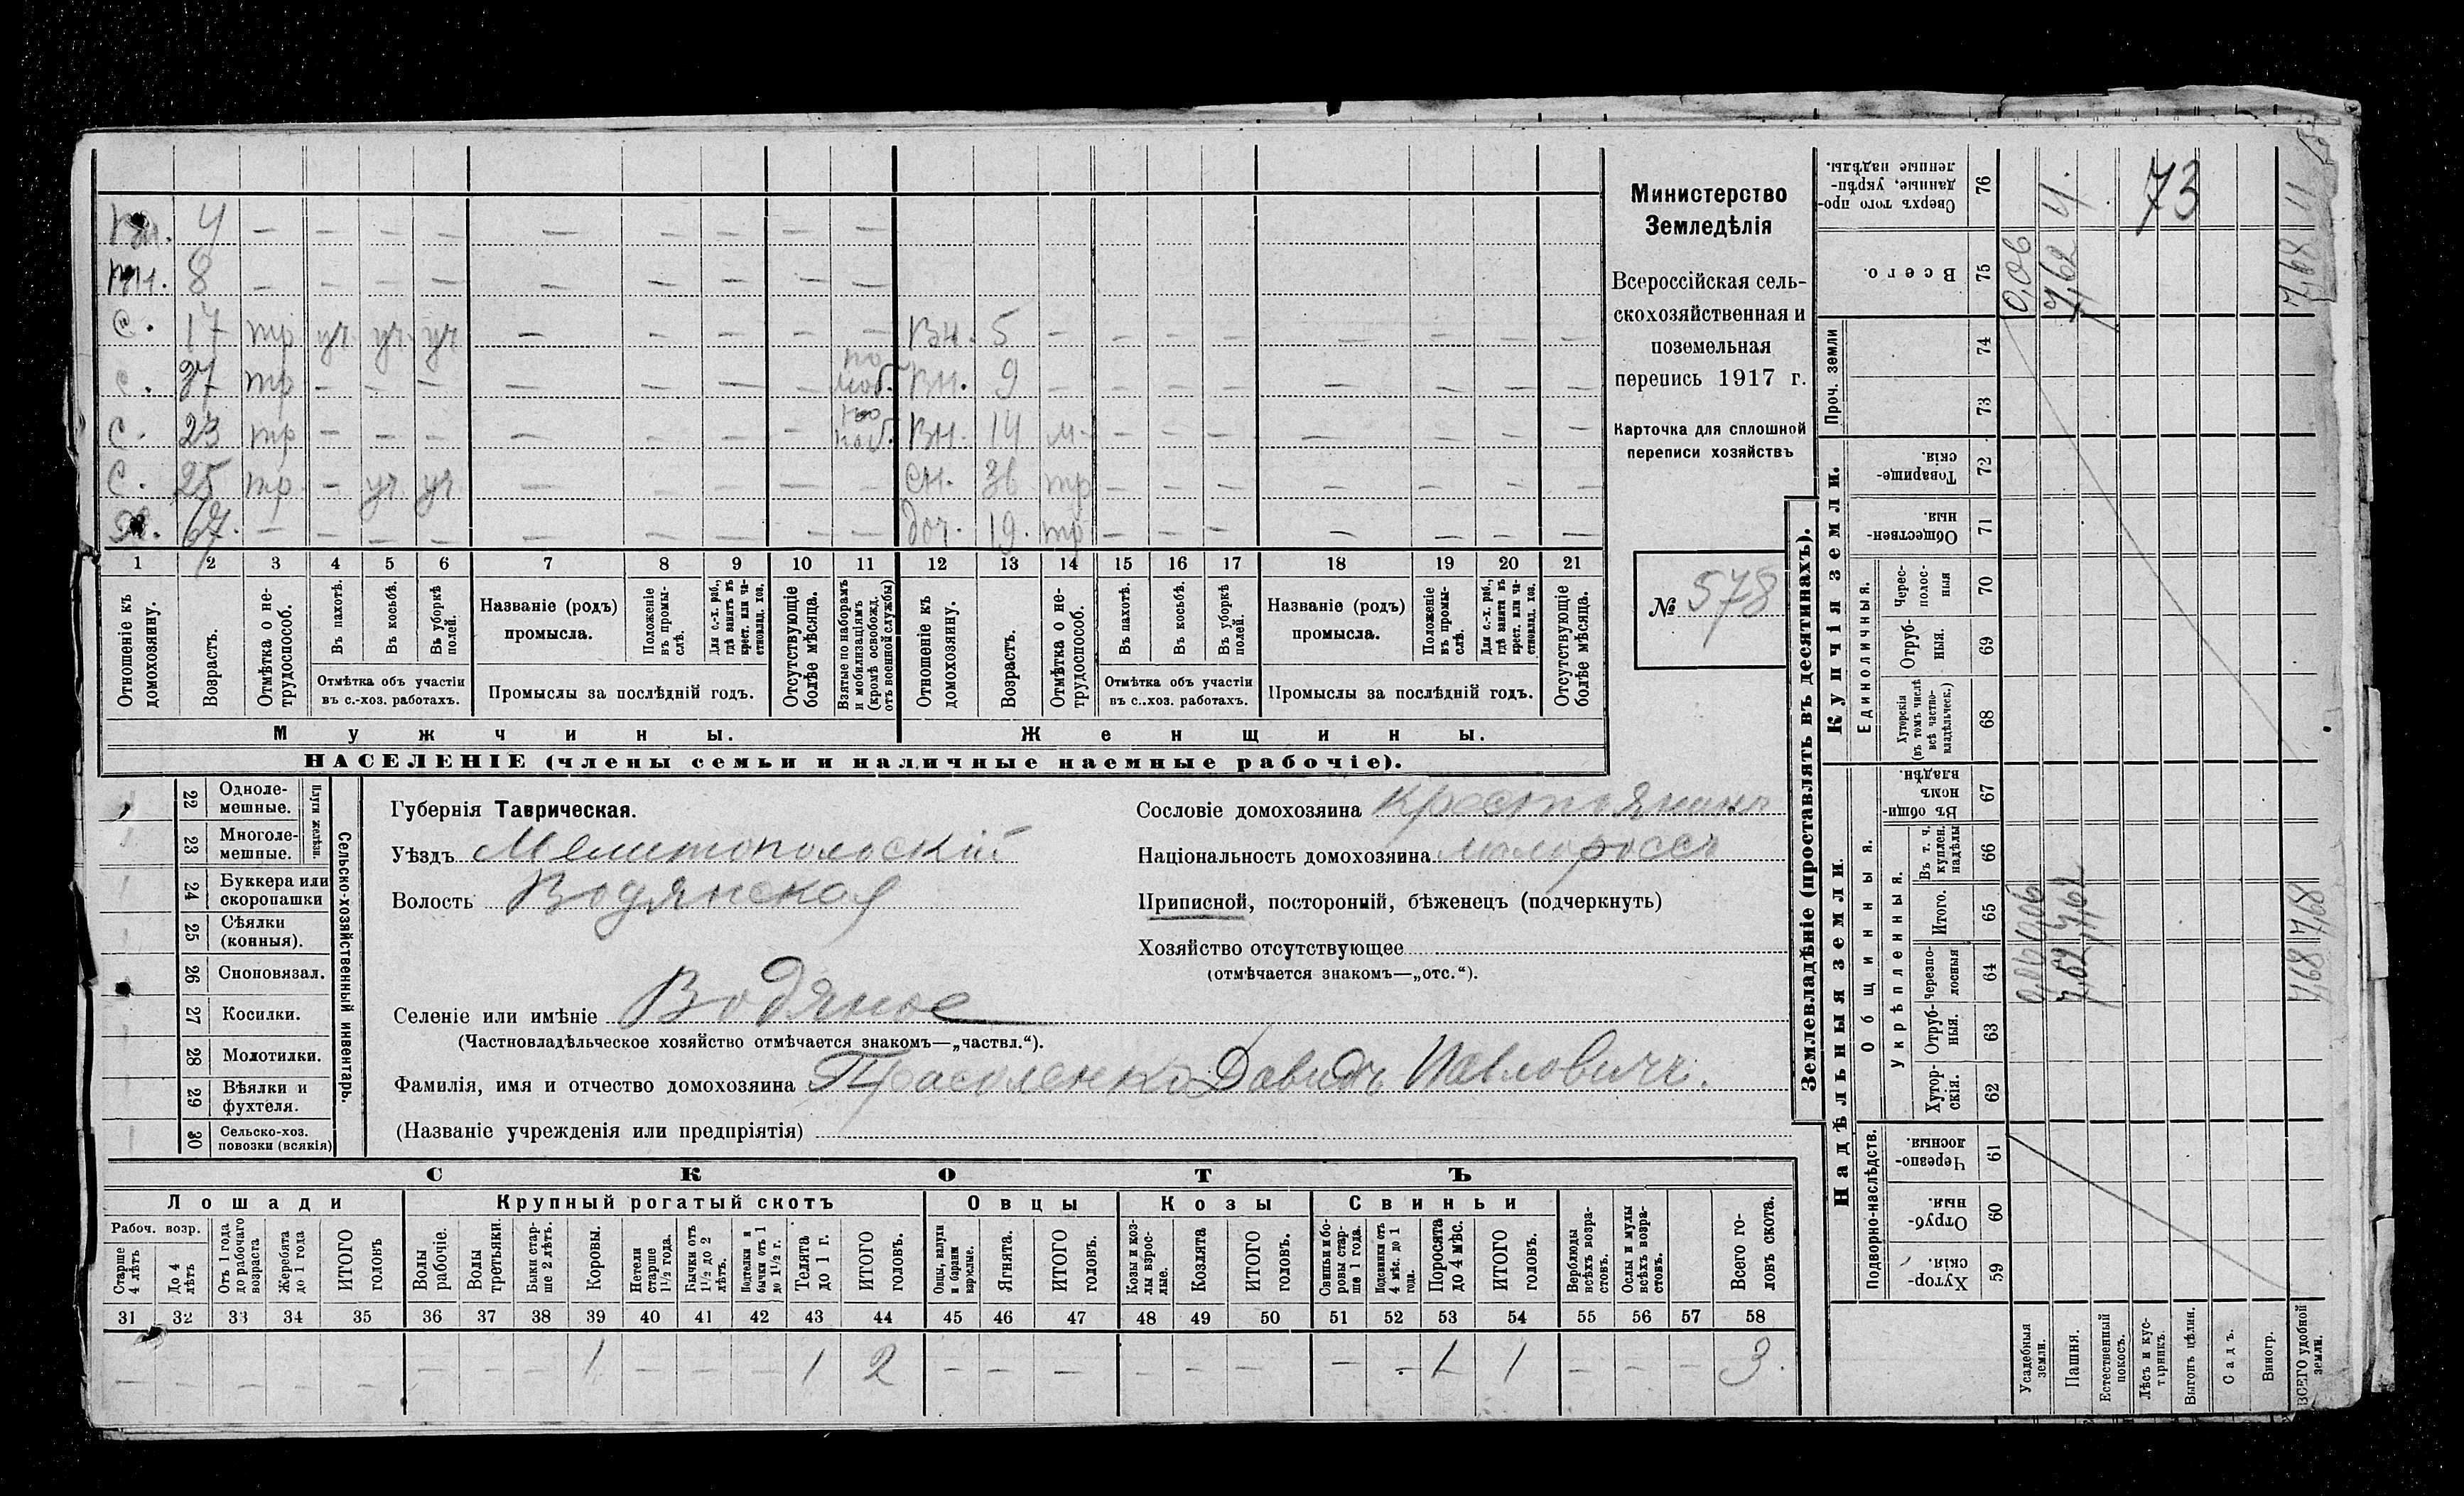 Вн. 4 — — — — — — — — —
Вн. 8 — — — — — — — — —
С. 17 тр уч. уч. уч — — — — — Вн. 5 — — — — — — — —
С. 37 тр — — — — — — — по моб. Вн. 9 — — — — — — — —
С. 23 тр — — — — — — — по моб. Вн. 14 м — — — — — — — —
С. 25 тр. — уч. уч. — — — — — Сн. 36 тр — — — — — — —
Х. 67. — — — — — — — — — доч. 19. тр — — — — — — —
1 2 3 4 5 6 7 8 9 10 11 12 13 14 15 16 17 18 19 20 21
Отношеніе къ домохозяину.
Возрастъ.
Отмѣтка о не-трудоспособ.
Въ пахотѣ.
Въ косьбѣ.
Въ уборкѣ полей.
Отмѣтка объ участіи въ с.-хоз. работахъ.
Названіе (родъ) промысла.
Положеніе въ промы-слѣ.
Для с.-х. раб., гдѣ занятъ въ крест. или ча-стновлад. хоз.
Промыслы за послѣдній годъ.
Отсутствующіе болѣе мѣсяца.
Взятые по наборамъ и мобилизаціямъ (кромѣ освобожд. отъ военной службы)
Отношеніе къ домохозяину.
Возрастъ.
Отмѣтка о не-трудоспособ.
Въ пахотѣ.
Въ косьбѣ.
Въ уборкѣ полей.
Отмѣтка объ участіи въ с..хоз. работахъ.
Названіе (родъ) промысла.
Положеніе въ промы-слѣ.
Для с.-х. раб., гдѣ занята въ крест. или ча-стновлад. хоз.
Промыслы за послѣдній годъ.
Отсутствующіе болѣе мѣсяца.
Мужчины.
Женщины.
НАСЕЛЕНІЕ (члены семьи и наличные наемные рабочіе).
Министерство
Земледѣлія
Всероссійская сель-
скохозяйственная и
поземельная
перепись 1917 г.
Карточка для сплошной
переписи хозяйствъ
№ 578
22 Одноле-мешные.
23 Многоле-мешные.
Плуги желѣзн.
24 Буккера или скоропашки
25 Сѣялки (конныя).
26 Сноповязал.
27 Косилки.
28 Молотилки.
29 Вѣялки и фухтеля.
30 Сельско-хоз. повозки (всякія)
Сельско-хозяйственный инвентарь.
Губернія Таврическая.
Уѣздъ Мелитопольскій
Волость Водянская
Селеніе или имѣніе Водяное
(Частновладѣльческое хозяйство отмѣчается знакомъ—„частвл.“).
Фамилія, имя и отчество домохозяина Давидъ Павловичъ.
(Названіе учрежденія или предпріятія)
Сословіе домохозяина Крестьянинъ
Національность домохозяина малороссъ
Приписной, посторонній, бѣженецъ (подчеркнуть)
Хозяйство отсутствующее
(отмѣчается знакомъ—„отс.“).
СКОТЪ
Лошади
Крупный рогатый скотъ
Овцы
Козы
Свиньи
Рабоч. возр.
Старше 4 лѣтъ
До 4 лѣтъ
Отъ 1 года до рабочаго возраста
Жеребята до 1 года
ИТОГО головъ
Волы рабочіе.
Волы третьяки.
Быки стар-ше 2 лѣтъ.
Коровы.
Нетели старше 1½ года.
Бычки отъ 1½ до 2 лѣтъ.
Подтелки и бычки отъ 1 до 1½ г.
Телята до 1 г.
ИТОГО головъ.
Овцы, валухи и бараны взрослые.
Ягнята.
ИТОГО головъ.
Козы и коз-лы взрос-лые.
Козлята
ИТОГО головъ.
Свиньи и бо-ровы стар-ше 1 года.
Подсвинки отъ 4 мѣс. до 1 года.
Поросята до 4 мѣс.
ИТОГО головъ.
Верблюды всѣхъ возра-стовъ.
Ослы и мулы всѣхъ возра-стовъ.
Всего го-ловъ скота.
31 32 33 34 35 36 37 38 39 40 41 42 43 44 45 46 47 48 49 50 51 52 53 54 55 56 57 58
— — — — — — — — 1 — — — 1 2 — — — — — — — — 1 1 — — — 3.
Землевладѣніе (проставлять въ десятинахъ).
Надѣльныя земли
Купчія земли.
Проч. земли
Подворно-наслѣдств.
Общинныя.
Укрѣпленныя.
Единоличныя.
59 Хутор-скія.
60 Отруб-ныя.
61 Черезпо-лосныя
62 Хутор-скія.
63 Отруб-ныя.
64 Черезпо-лосныя
65 Итого.
66 Въ т. ч. куплен. надѣлы
67 Въ общин-номъ владѣн.
68 Хуторскія (въ томъ числѣ всѣ частно-владѣльческ.)
69 Отруб-ныя.
70 Черес-полос-ныя
71 Обществен-ныя.
72 Товарище-скія.
73
74
75 Всего.
76 Сверхъ того про-данные, укрѣп-ленные надѣлы.
Усадебныя земли.
0,06 0,06 0,06
Пашня.
7,62 7,62 7,62 4.
Естественный покосъ.
Лѣсъ и кус-тарникъ.
73
Выгонъ цѣлин.
Садъ.
Виногр.
ВСЕГО удобной земли.
7,68 7,68 7,68 4